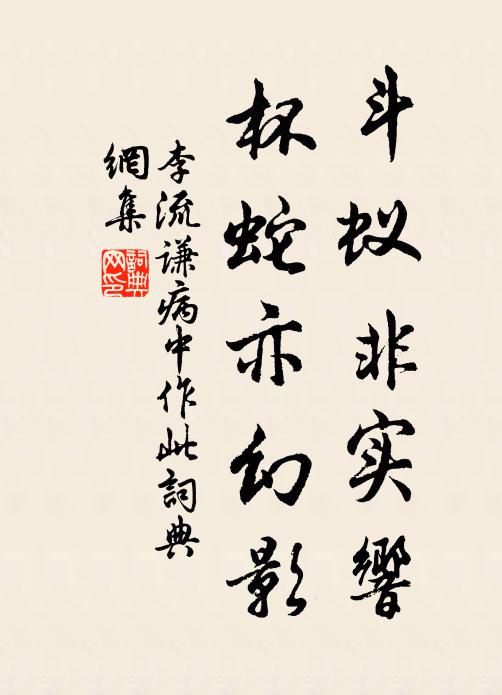 斗蚁非实響
杯蛇亦幻影
李流谦病中作此詞典
網集
詞典网印